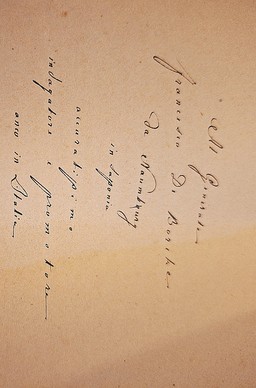 Al Generale
Francesco De
da Naumburg
in Sassonia
accuratissimo
indagatore e promotore
in Italia